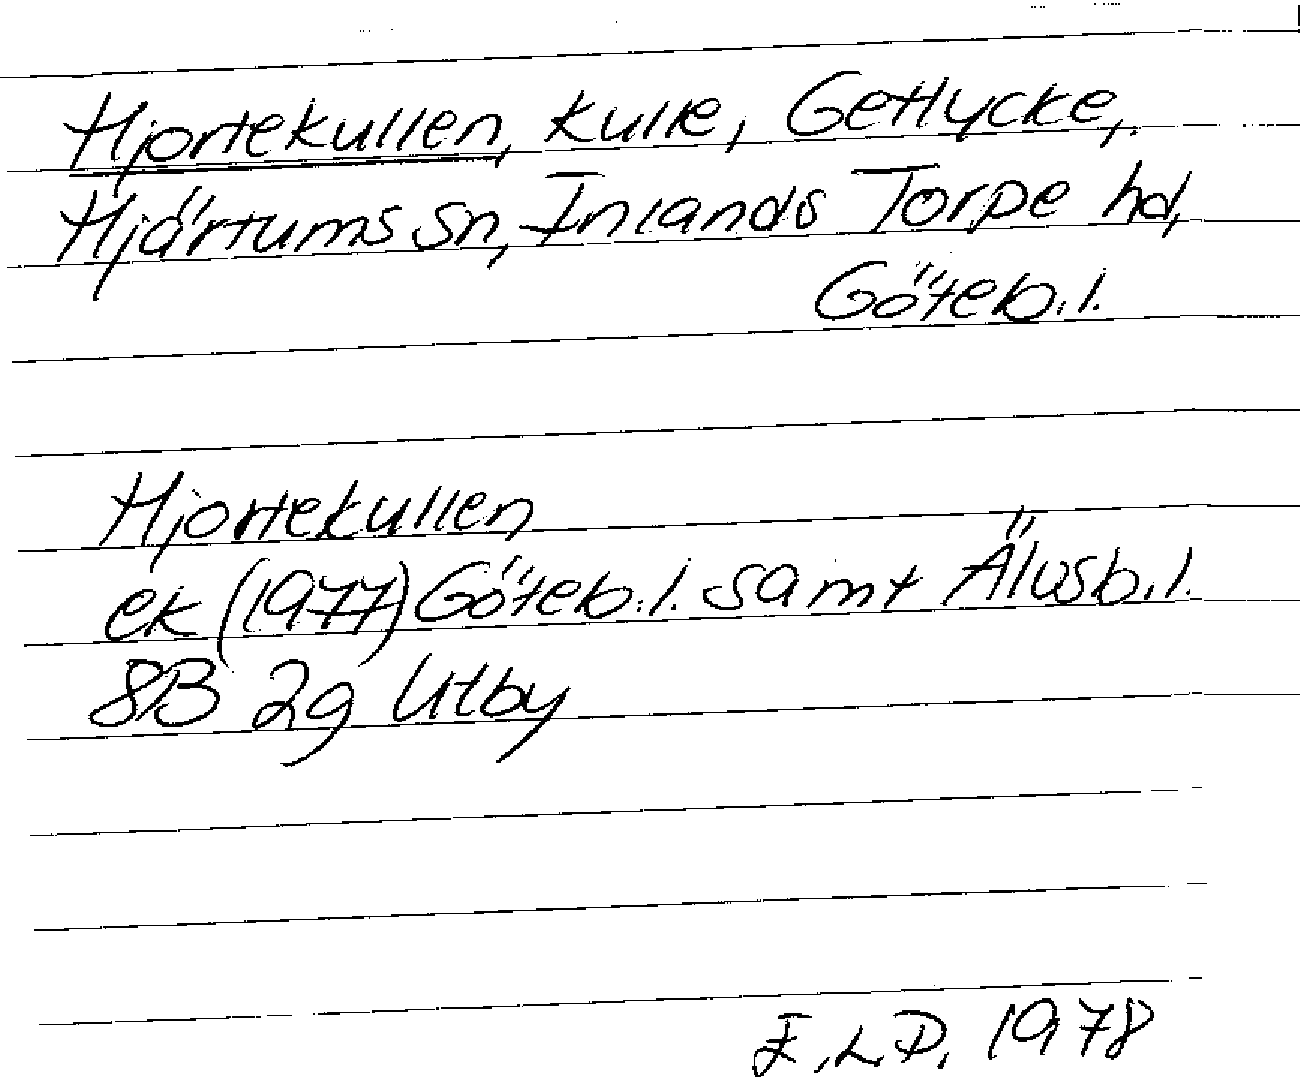 Hjortekullen, kulle, Getlycke,
Hjärtums sn, Inlands Torpe hd,
Göteb.l.
Hjortekullen
ek (1977) Göteb.l. samt Älvsb.l.
8B 2g Utby
I.L.D. 1978